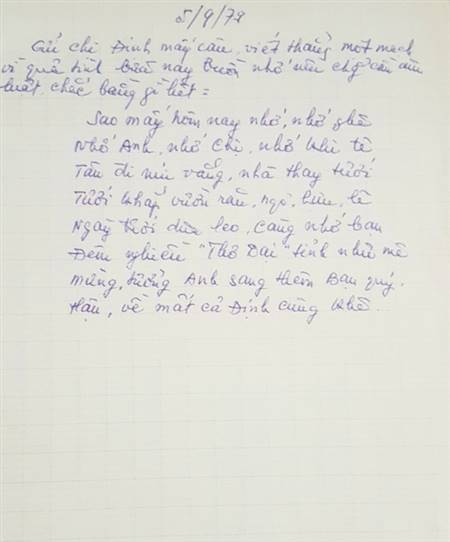 5/9/79
Gửi chị Đinh mấy câu, viết thẳng một mạch
vì quả tình bữa nay buồn nhớ nên chả cần âm
luật, chắc bằng gì hết:
Sao mấy hôm nay nhớ, nhớ ghê
Nhớ Anh, nhớ Chị, nhớ khi tê
Tân đi níu vắng, nhà thay tưới
Tưới khắp vườn rau, ngò, hẹ, lê
Ngày tưới dưa leo, càng nhớ bạn
Đêm nghiến "Thơ Dại" tỉnh như mê
Mừng, tưởng Anh sang thêm Bạn quý.
Hậu, về mất cả Định cũng khề.